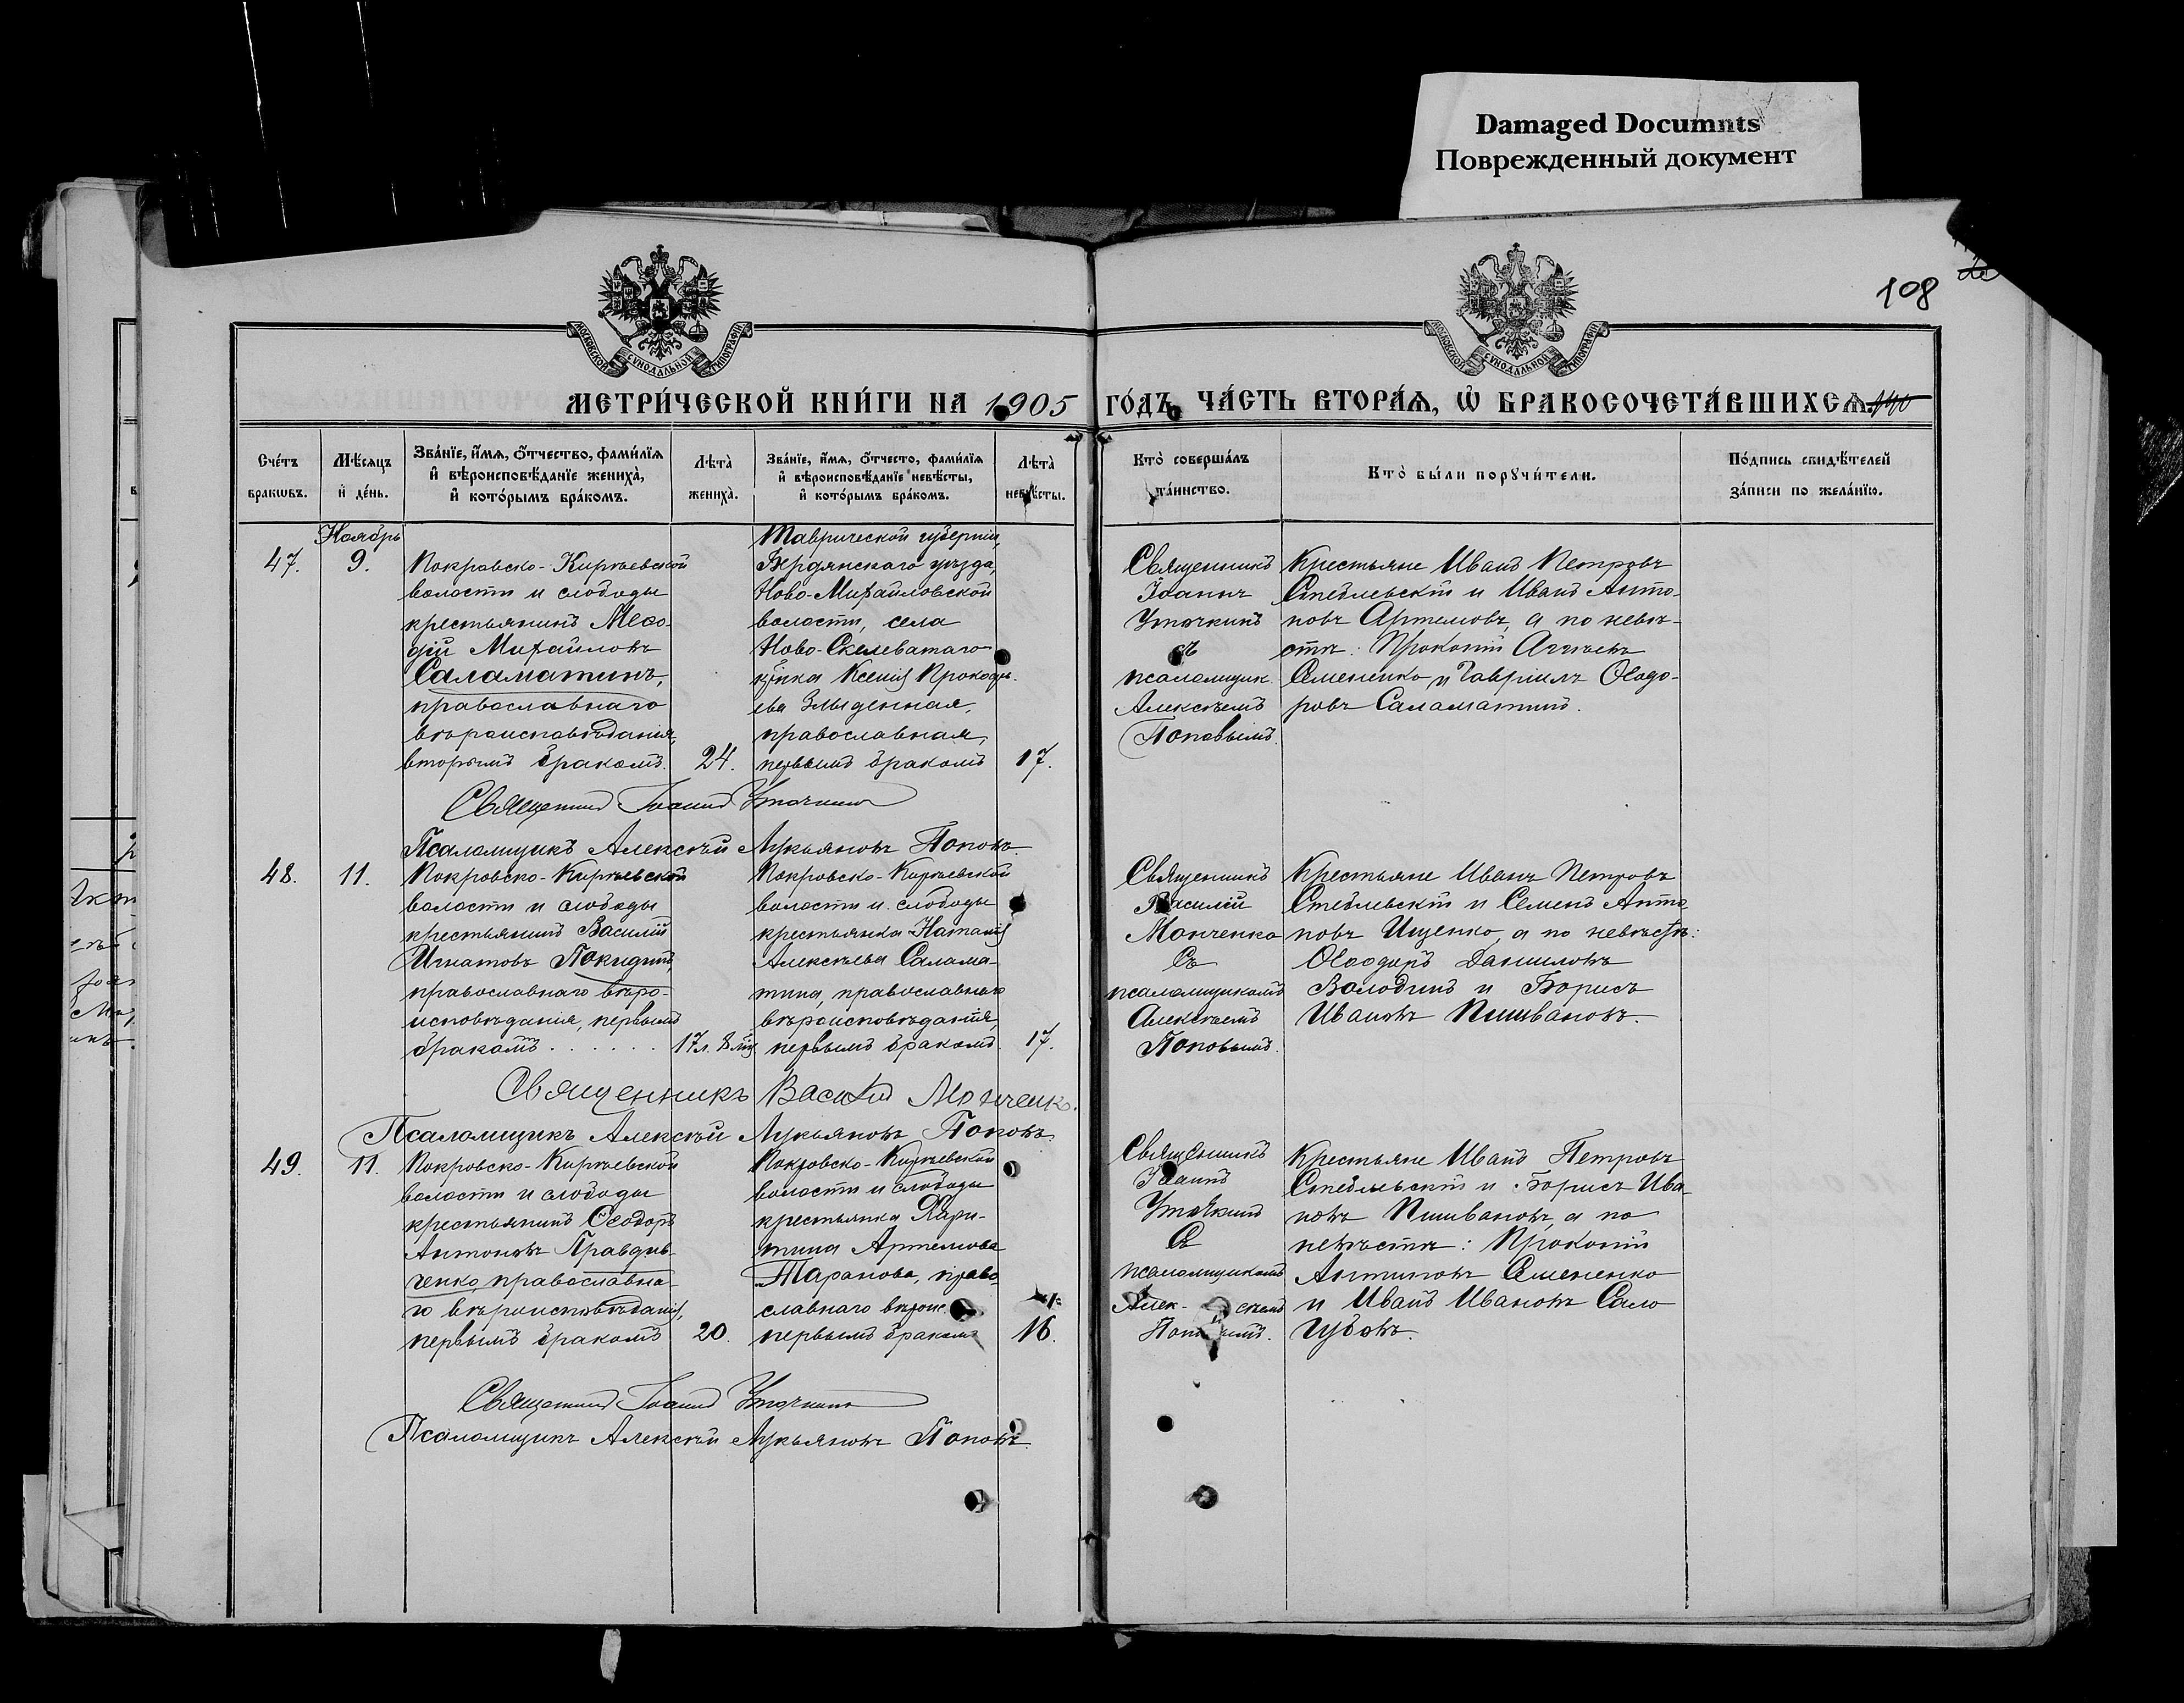 Damaged Documnts
Поврежденный документ
108
МОСКОВСКОЙ СѴНОДАЛЬНОЙ ТИПОГРАФІИ
МОСКОВСКОЙ СѴНОДАЛЬНОЙ ТИПОГРАФІИ
МЕТРИ́ЧЕСКОЙ КНИ́ГИ НА 1905 ГО́ДЪ, ЧА́СТЬ ВТОРА́Ѧ, Ѡ҆ БРАКОСОЧЕТА́ВШИХСѦ
Сче́тъ
браковъ.
Мѣ́сяцъ
и҆ де́нь.
Зва́нїе, и҆́мѧ, ѻ҆́тчество, фами́лїѧ
и҆ вѣроисповѣ́данїе жениха̀,
и҆ кото́рымъ бра́комъ.
Лѣта̀
жениха̀.
Зва́нїе, и҆́мѧ, ѻ҆́тчесто, фами́лїѧ
и҆ вѣроисповѣ́данїе невѣ́сты,
и҆ кото́рымъ бра́комъ.
Лѣта̀
невѣ́сты.
Кто̀ соверша́лъ
та́инство.
Кто̀ бы́ли порꙋчи́тели.
По́дпись свидѣ́телей
за́писи по жела́нїю.
Ноябрь
47.
9.
Покровско-Кирѣевской
волости и слободы
крестьянинъ Меѳо-
дій Михайловъ
Саламатинъ,
православнаго
вѣроисповѣданія,
вторымъ бракомъ.
24.
Таврической губерніи,
Бердянскаго уѣзда,
Ново-Михайловской
волости, села
Ново-Скелеватаго
кр̃нка Ксенія Прокофь-
ева Злыденная,
православная,
первымъ бракомъ
17.
Священникъ
Іоаннъ
Уточкинъ
съ
псаломщик.
Алексѣемъ
Поповымъ.
Крестьяне Иванъ Петровъ
Стеблевскій и Иванъ Анто-
новъ Артемовъ, а по невѣ-
стѣ: Прокопій
Семененко и Гавріилъ Ѳеодо-
ровъ Саламатинъ.
Священникъ Іоаннъ Уточкинъ
Псаломщикъ Алексѣй Лукьяновъ Поповъ.
48.
11.
Покровско-Кирѣевской
волости и слободы
крестьянинъ Василій
Игнатовъ Покидинъ,
православнаго вѣро-
исповѣданія, первымъ
бракомъ . . . . . .
17 л. 8 м.
Покровско-Кирѣевской
волости и слободы
крестьянка Наталія
Алексѣева Салама-
тина, православнаго
вѣроисповѣданія,
первымъ бракомъ.
17.
Священникъ
Василій
Мотченко
Съ
псаломщикомъ
Алексѣемъ
Поповымъ.
Крестьяне Иванъ Петровъ
Стеблевскій и Семенъ Анто-
новъ Ищенко, а по невѣстѣ:
Ѳеодоръ Даниловъ
Володинъ и Борисъ
Ивановъ Пишвановъ.
Священникъ Василій Мотченко.
Псаломщикъ Алексѣй Лукьяновъ Поповъ.
49.
11.
Покровско-Кирѣевской
волости и слободы
крестьянинъ Ѳеодоръ
Антоновъ Правдив-
ченко, православна-
го вѣроисповѣданія,
первымъ бракомъ
20.
Покровско-Кирѣевской
волости и слободы
крестьянка Хари-
тина Артемова
Таранова, право-
славнаго вѣрои
первымъ бракомъ
16.
Священникъ
Іоаннъ
Уточкинъ
Съ
псаломщикомъ
Алек- сѣемъ
Поповымъ.
Крестьяне Иванъ Петровъ
Стеблевскій и Борисъ Ива-
новъ Пишвановъ, а по
невѣстѣ: Прокопій
Антиповъ Семененко
и Иванъ Ивановъ Сало-
губовъ.
Священникъ Іоаннъ Уточкинъ
Псаломщикъ Алексѣй Лукьяновъ Поповъ.